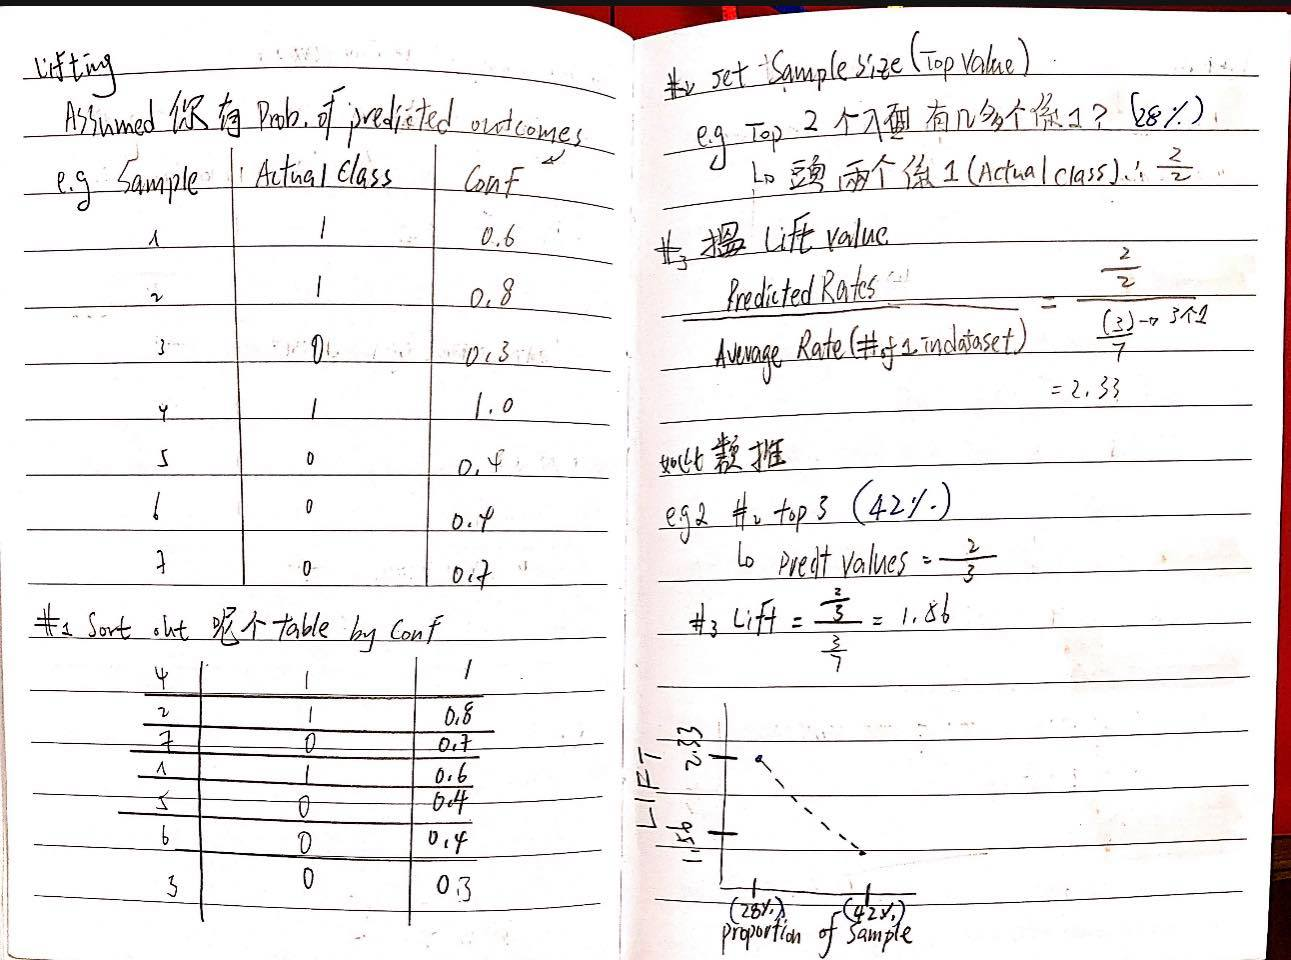 Lifting
Assumed 你有 Prob. of predicted outcomes
e.g Sample Actual Class Conf
1 1 0.6
2 1 0.8
3 0 0.3
4 1 1.0
5 0 0.4
6 0 0.4
7 0 0.7
#1 Sort out 呢个 table by Conf
4 1 1
2 1 0.8
7 0 0.7
1 1 0.6
5 0 0.4
6 0 0.4
3 0 0.3
#2 set Sample size (Top Value)
e.g Top 2 个入面有几多个係 1? (28%)
↳ 頭兩个係 1 (Actual class) ∴ 2/2
#3 搵 Lift value
Predicted Rates / Average Rate (# of 1 in dataset) = (2/2) / ((3)→3个1 / 7)
= 2.33
如此類推
e.g 2 #2 top 3 (42%)
↳ Predt values = 2/3
#3 Lift = (2/3) / (3/7) = 1.56
LIFT
2.33
1.56
(28%) (42%)
proportion of Sample